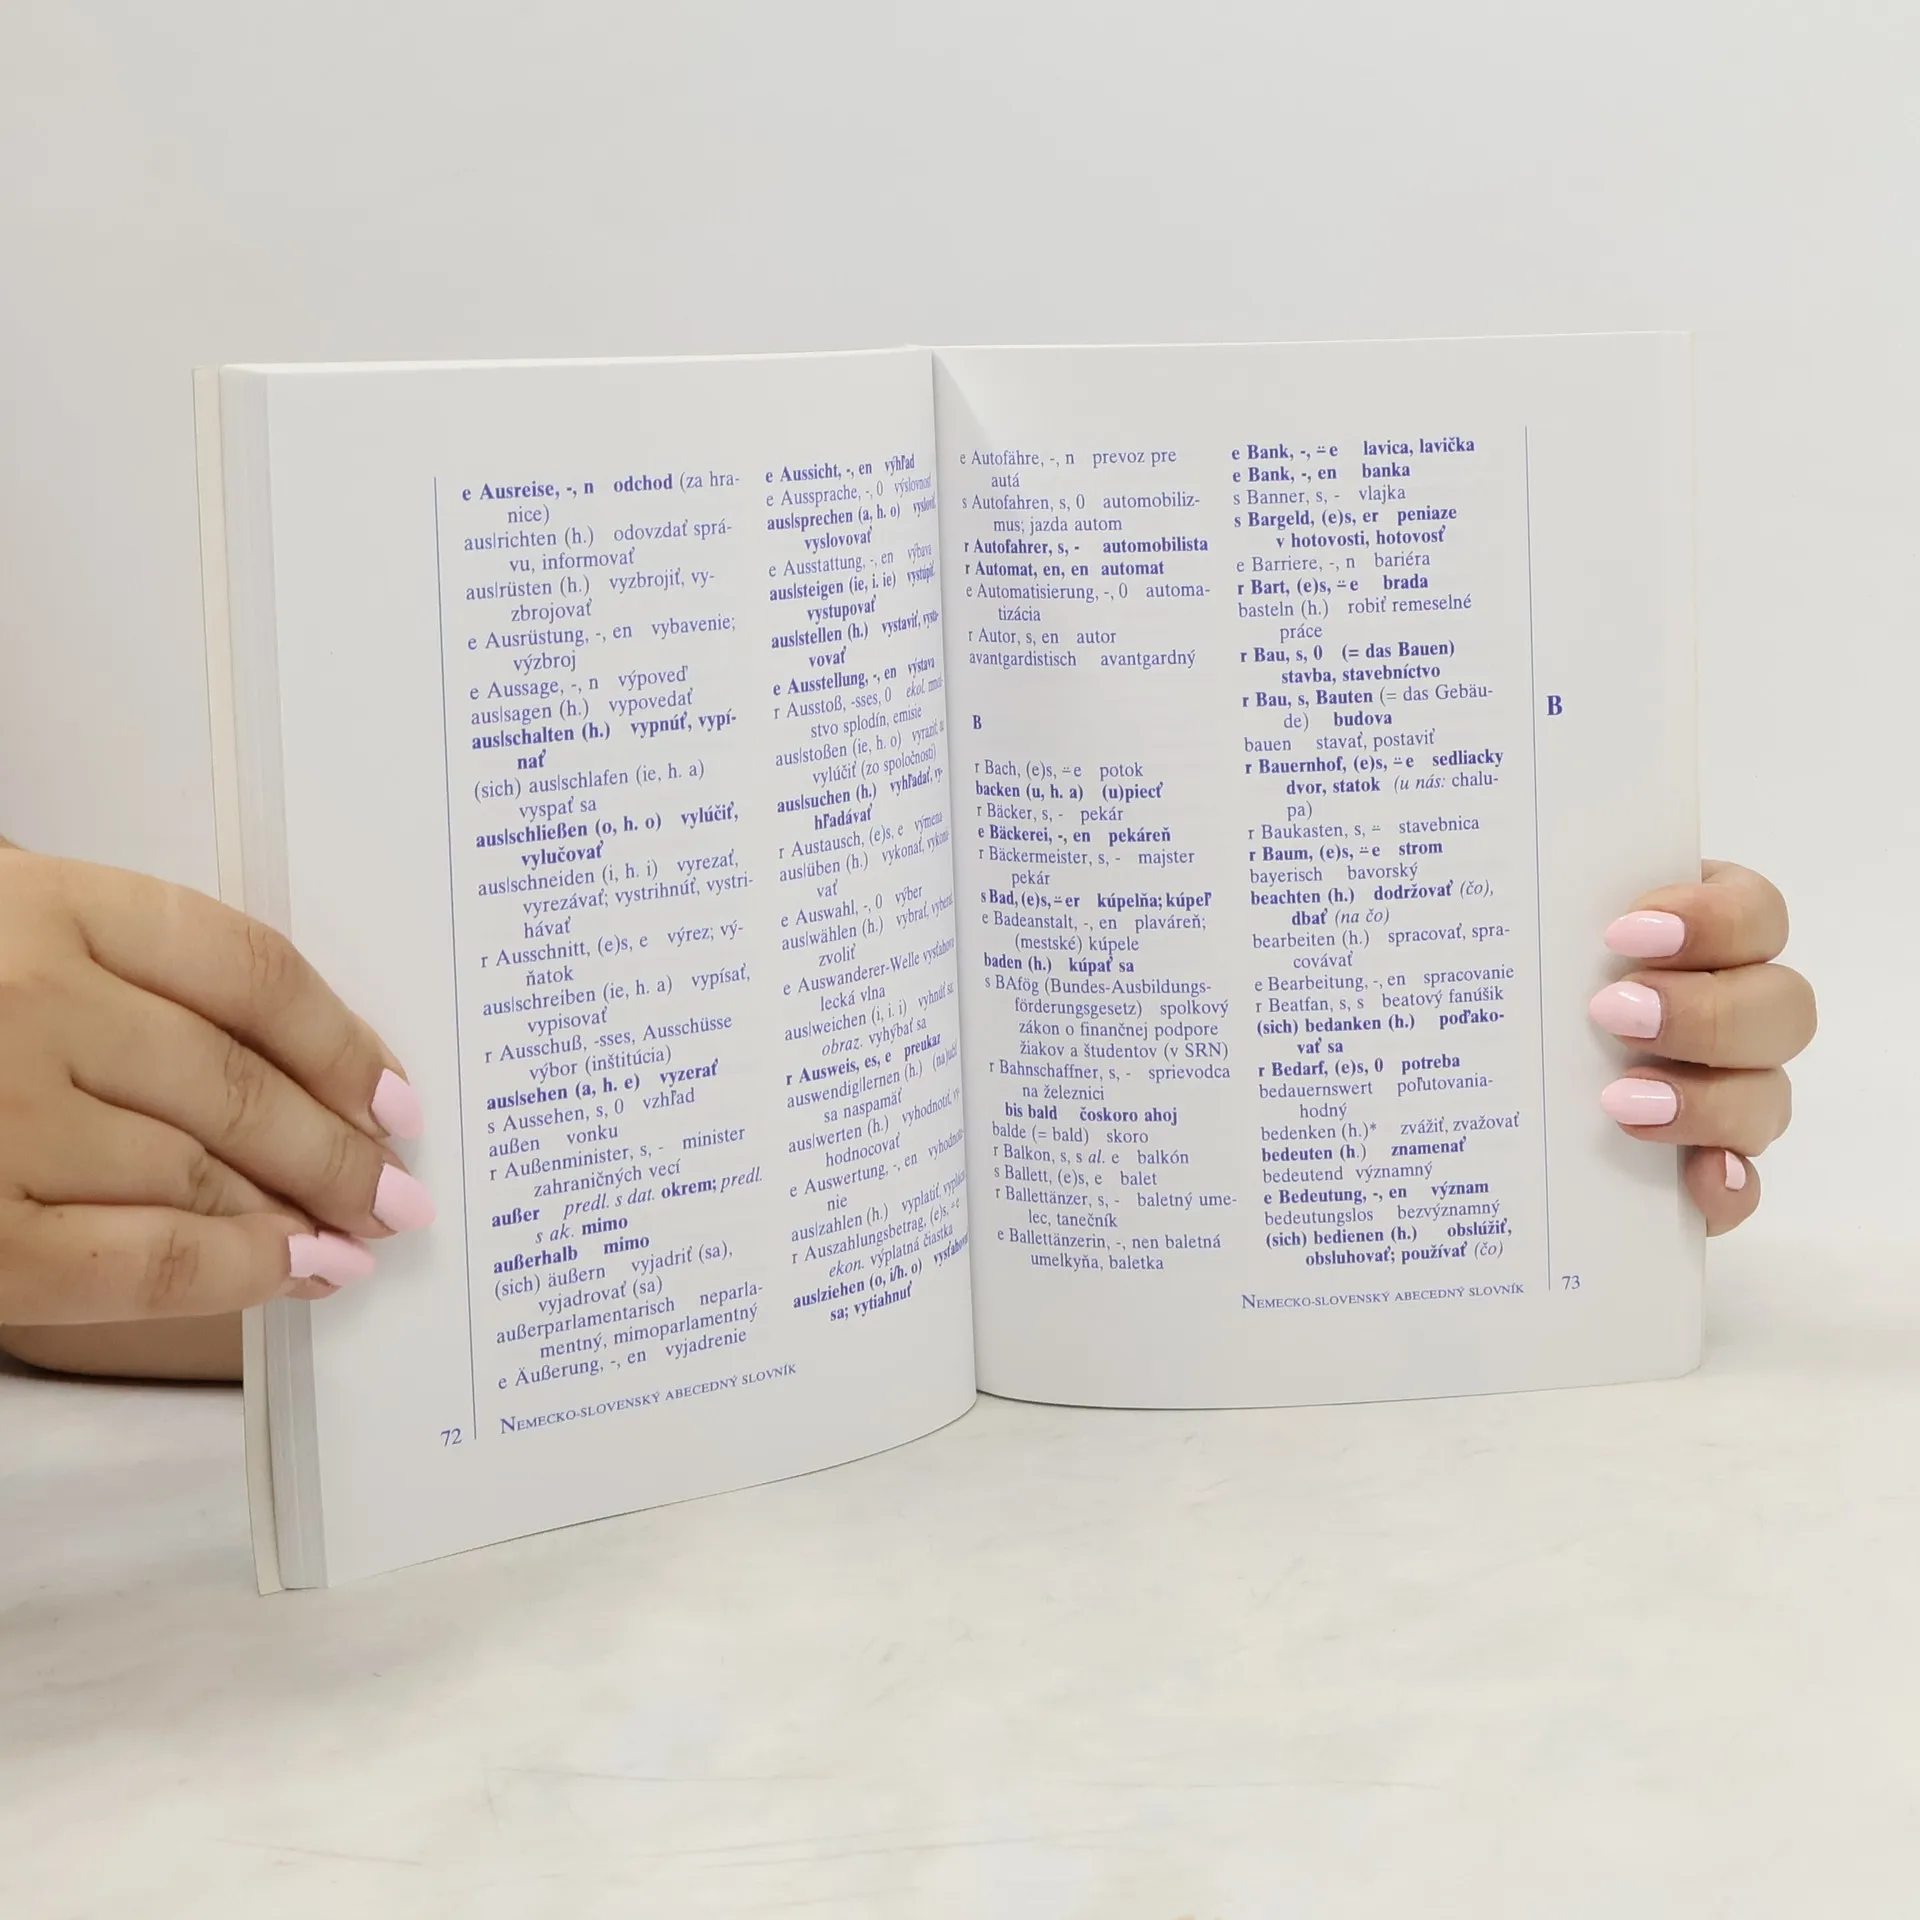 e Ausreise, -, n odchod (za hra-
nice)
aus|richten (h.) odovzdať sprá-
vu, informovať
aus|rüsten (h.) vyzbrojiť, vy-
zbrojovať
e Ausrüstung, -, en vybavenie;
výzbroj
e Aussage, -, n výpoveď
aus|sagen (h.) vypovedať
aus|schalten (h.) vypnúť, vypí-
nať
(sich) aus|schlafen (ie, h. a)
vyspať sa
aus|schließen (o, h. o) vylúčiť,
vylučovať
aus|schneiden (i, h. i) vyrezať,
vyrezávať; vystrihnúť, vystri-
hávať
r Ausschnitt, (e)s, e výrez; vý-
ňatok
aus|schreiben (ie, h. a) vypísať,
vypisovať
r Ausschuß, -sses, Ausschüsse
výbor (inštitúcia)
aus|sehen (a, h. e) vyzerať
s Aussehen, s, 0 vzhľad
außen vonku
r Außenminister, s, - minister
zahraničných vecí
außer predl. s dat. okrem; predl.
s ak. mimo
außerhalb mimo
(sich) äußern vyjadriť (sa),
vyjadrovať (sa)
außerparlamentarisch neparla-
mentný, mimoparlamentný
e Äußerung, -, en vyjadrenie
e Aussicht, -, en výhľad
e Aussprache, -, 0 výslovnosť
aus|sprechen (a, h. o)
vyslovovať
e Ausstattung, -, en výbava
aus|steigen (ie, i. ie) vystúpiť,
vystupovať
aus|stellen (h.) vystaviť, vysta-
vovať
e Ausstellung, -, en výstava
r Ausstoß, -sses, 0 ekol.
stvo splodín, emisie
aus|stoßen (ie, h. o) vyraziť;
vylúčiť (zo spoločnosti)
aus|suchen (h.) vyhľadať, vy-
hľadávať
r Austausch, (e)s, e výmena
aus|üben (h.) vykonať, vykoná-
vať
e Auswahl, -, 0 výber
aus|wählen (h.) vybrať, vyberať,
zvoliť
e Auswanderer-Welle
lecká vlna
aus|weichen (i, i. i) vyhnúť sa;
obraz. vyhýbať sa
r Ausweis, es, e preukaz
auswendig|lernen (h.)
sa naspamäť
aus|werten (h.) vyhodnotiť, vy-
hodnocovať
e Auswertung, -, en vyhodnote-
nie
aus|zahlen (h.) vyplatiť, vyplácať
r Auszahlungsbetrag, (e)s, ⸚e
ekon. výplatná čiastka
aus|ziehen (o, i/h. o)
sa; vytiahnuť
72 NEMECKO-SLOVENSKÝ ABECEDNÝ SLOVNÍK
e Autofähre, -, n prevoz pre
autá
s Autofahren, s, 0 automobiliz-
mus; jazda autom
r Autofahrer, s, - automobilista
r Automat, en, en automat
e Automatisierung, -, 0 automa-
tizácia
r Autor, s, en autor
avantgardistisch avantgardný
B
r Bach, (e)s, ⸚e potok
backen (u, h. a) (u)piecť
r Bäcker, s, - pekár
e Bäckerei, -, en pekáreň
r Bäckermeister, s, - majster
pekár
s Bad, (e)s, ⸚er kúpelňa; kúpeľ
e Badeanstalt, -, en plaváreň;
(mestské) kúpele
baden (h.) kúpať sa
s BAfög (Bundes-Ausbildungs-
förderungsgesetz) spolkový
zákon o finančnej podpore
žiakov a študentov (v SRN)
r Bahnschaffner, s, - sprievodca
na železnici
bis bald čoskoro ahoj
balde (= bald) skoro
r Balkon, s, s al. e balkón
s Ballett, (e)s, e balet
r Ballettänzer, s, - baletný ume-
lec, tanečník
e Ballettänzerin, -, nen baletná
umelkyňa, baletka
e Bank, -, ⸚e lavica, lavička
e Bank, -, en banka
s Banner, s, - vlajka
s Bargeld, (e)s, er peniaze
v hotovosti, hotovosť
e Barriere, -, n bariéra
r Bart, (e)s, ⸚e brada
basteln (h.) robiť remeselné
práce
r Bau, s, 0 (= das Bauen)
stavba, stavebníctvo
r Bau, s, Bauten (= das Gebäu-
de) budova
bauen stavať, postaviť
r Bauernhof, (e)s, ⸚e sedliacky
dvor, statok (u nás: chalu-
pa)
r Baukasten, s, ⸚ stavebnica
r Baum, (e)s, ⸚e strom
bayerisch bavorský
beachten (h.) dodržovať (čo),
dbať (na čo)
bearbeiten (h.) spracovať, spra-
covávať
e Bearbeitung, -, en spracovanie
r Beatfan, s, s beatový fanúšik
(sich) bedanken (h.) poďako-
vať sa
r Bedarf, (e)s, 0 potreba
bedauernswert poľutovania-
hodný
bedenken (h.)* zvážiť, zvažovať
bedeuten (h.) znamenať
bedeutend významný
e Bedeutung, -, en význam
bedeutungslos bezvýznamný
(sich) bedienen (h.) obslúžiť,
obsluhovať; používať (čo)
B
NEMECKO-SLOVENSKÝ ABECEDNÝ SLOVNÍK 73